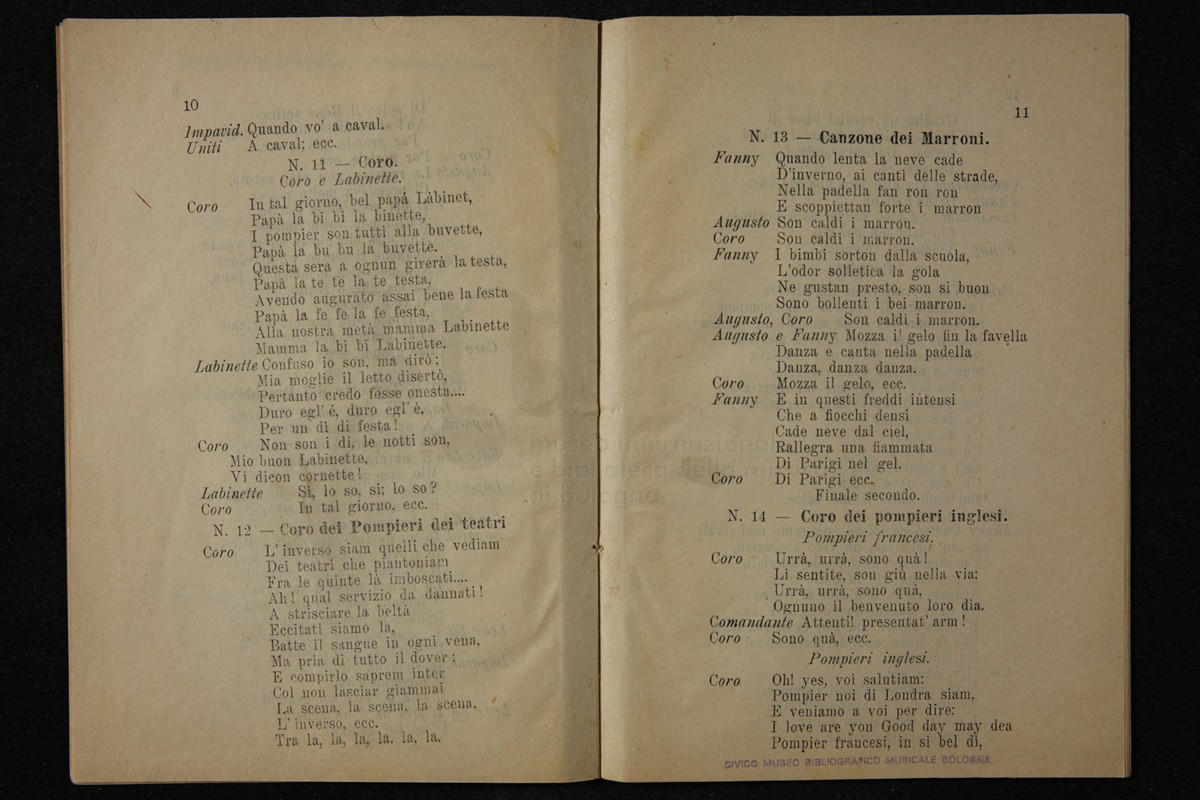 10
Impavid. Quando vo' a caval.
Uniti A caval; ecc.
N. 11 — Coro.
Coro e Labinette.
Coro In tal giorno, bel papá Làbinet,
Papà la bi bi la binette,
I pompier son tutti alla buvette,
Papà la bu bu la buvette.
Questa sera a ognun girerà la testa,
Papà la te te la te testa,
Avendo augurato assai bene la festa
Papà la fe fe la fe festa,
Alla nostra metà mamma Labinette
Mamma la bi bi Labinette.
Labinette Confuso io son, ma dirò;
Mia moglie il letto disertò,
Pertanto credo fosse onesta....
Duro egl' é, duro egl' è,
Per un dì di festa!
Coro Non son i dì, le notti son,
Mio buon Labinette,
Vi dicon cornette!
Labinette Sì, lo so, si; lo so?
Coro In tal giorno, ecc.
N. 12 — Coro dei Pompieri dei teatri
Coro L' inverso siam quelli che vediam
Dei teatri che piantoniam
Fra le quinte là imboscati....
Ah! qual servizio da dannati!
A strisciare la beltà
Eccitati siamo la,
Batte il sangue in ogni vena,
Ma pria di tutto il dover;
E compirlo saprem inter
Col non lasciar giammai
La scena, la scena, la scena.
L' inverso, ecc.
Tra la, la, la, la, la, la.
11
N. 13 — Canzone dei Marroni.
Fanny Quando lenta la neve cade
D'inverno, ai canti delle strade,
Nella padella fan ron ron
E scoppiettan forte i marron
Augusto Son caldi i marron.
Coro Son caldi i marron.
Fanny I bimbi sorton dalla scuola,
L'odor solletica la gola
Ne gustan presto, son si buon
Sono bollenti i bei marron.
Augusto, Coro Son caldi i marron.
Augusto e Fanny Mozza il gelo fin la favella
Danza e canta nella padella
Danza, danza danza.
Coro Mozza il gelo, ecc.
Fanny E in questi freddi intensi
Che a fiocchi densi
Cade neve dal ciel,
Rallegra una fiammata
Di Parigi nel gel.
Coro Di Parigi ecc.
Finale secondo.
N. 14 — Coro dei pompieri inglesi.
Pompieri francesi.
Coro Urrà, urrà, sono quà!
Li sentite, son giù nella via:
Urrà, urrà, sono quá,
Ognuno il benvenuto loro dia.
Comandante Attenti! presentat' arm!
Coro Sono quà, ecc.
Pompieri inglesi.
Coro Oh! yes, voi salutiam:
Pompier noi di Londra siam,
E veniamo a voi per dire:
I love are yon Good day may dea
Pompier francesi, in si bel dì,
CIVICO MUSEO BIBLIOGRAFICO MUSICALE BOLOGNA
museo internazionale
e biblioteca della musica
di bologna